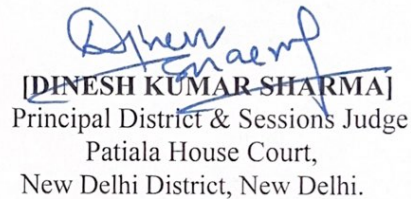 Dinesh
Sharma
[DINESH KUMAR SHARMA]
Principal District & Sessions Judge
Patiala House Court,
New Delhi District, New Delhi.